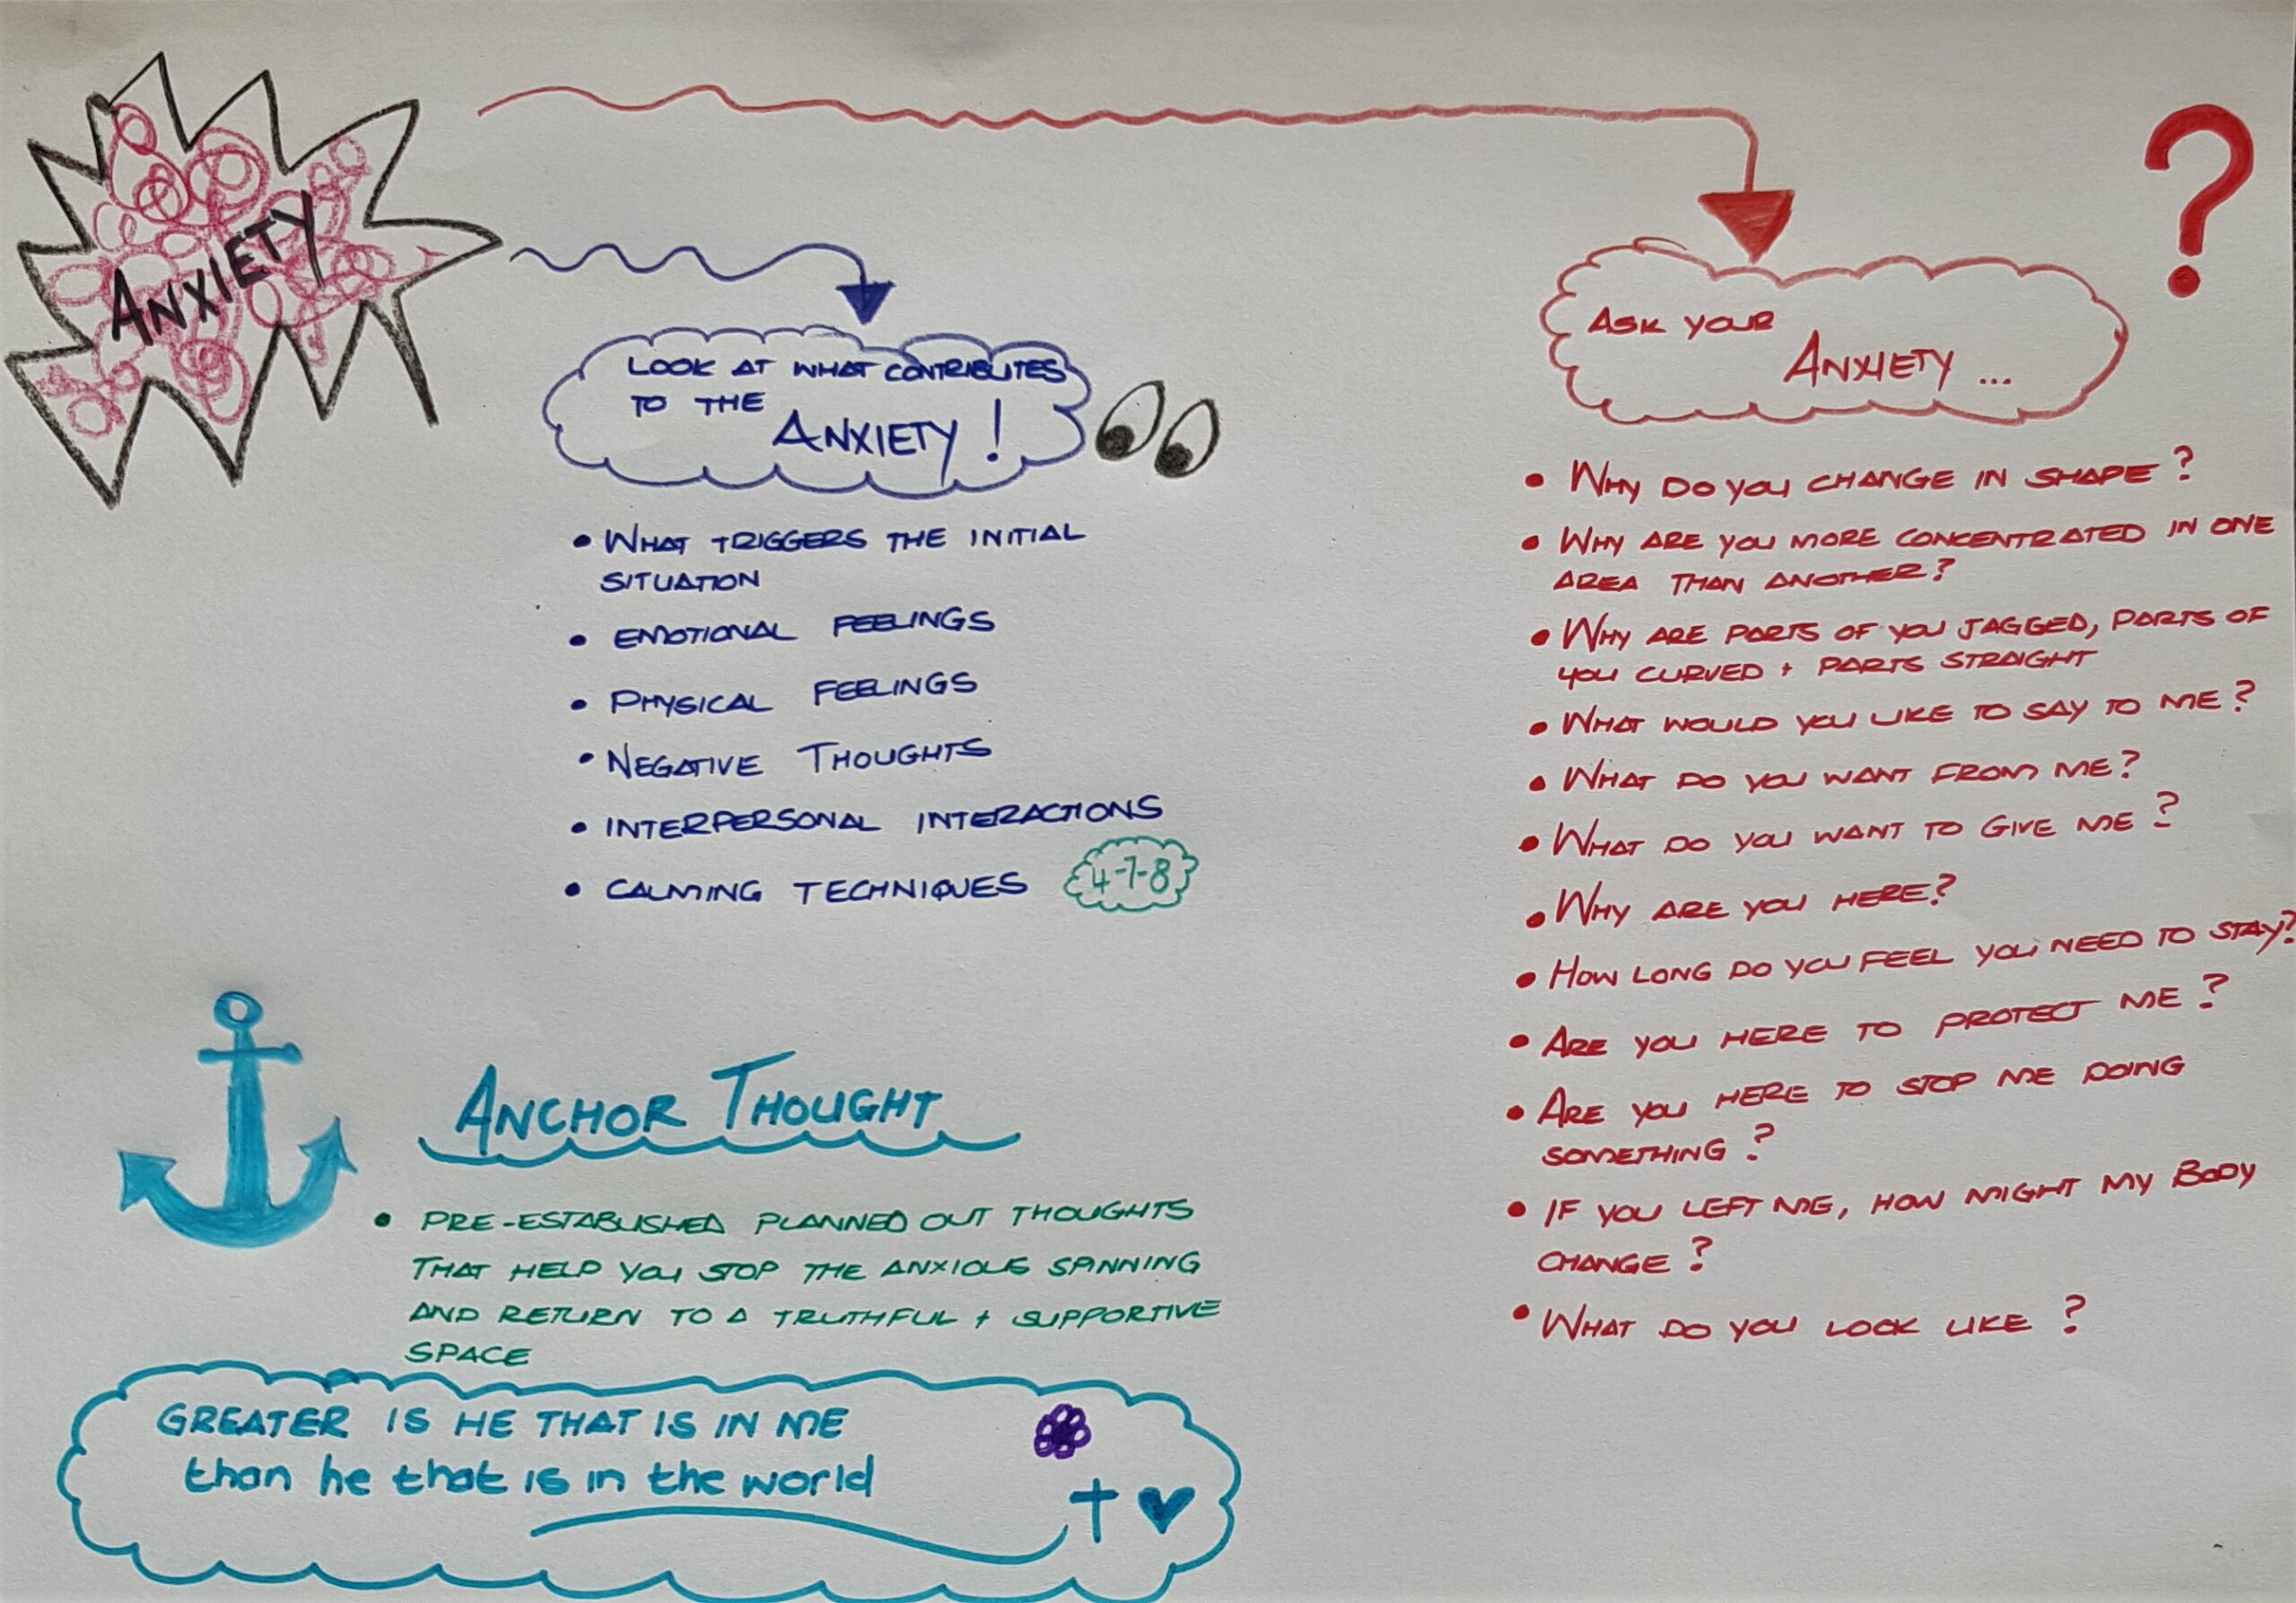 ANXIETY
LOOK AT WHAT CONTRIBUTES
TO THE
ANXIETY!
• WHAT TRIGGERS THE INITIAL
SITUATION
• EMOTIONAL FEELINGS
• PHYSICAL FEELINGS
• NEGATIVE THOUGHTS
• INTERPERSONAL INTERACTIONS
• CALMING TECHNIQUES 4-7-8
ANCHOR THOUGHT
• PRE-ESTABLISHED PLANNED OUT THOUGHTS
THAT HELP YOU STOP THE ANXIOUS SPINNING
AND RETURN TO A TRUTHFUL + SUPPORTIVE
SPACE
GREATER IS HE THAT IS IN ME
than he that is in the world
?
ASK YOUR
ANXIETY ...
• WHY DO YOU CHANGE IN SHAPE?
• WHY ARE YOU MORE CONCENTRATED IN ONE
AREA THAN ANOTHER?
• WHY ARE PARTS OF YOU JAGGED, PARTS OF
YOU CURVED + PARTS STRAIGHT
• WHAT WOULD YOU LIKE TO SAY TO ME?
• WHAT DO YOU WANT FROM ME?
• WHAT DO YOU WANT TO GIVE ME?
• WHY ARE YOU HERE?
• HOW LONG DO YOU FEEL YOU NEED TO STAY?
• ARE YOU HERE TO PROTECT ME?
• ARE YOU HERE TO STOP ME DOING
SOMETHING?
• IF YOU LEFT ME, HOW MIGHT MY BODY
CHANGE?
• WHAT DO YOU LOOK LIKE?